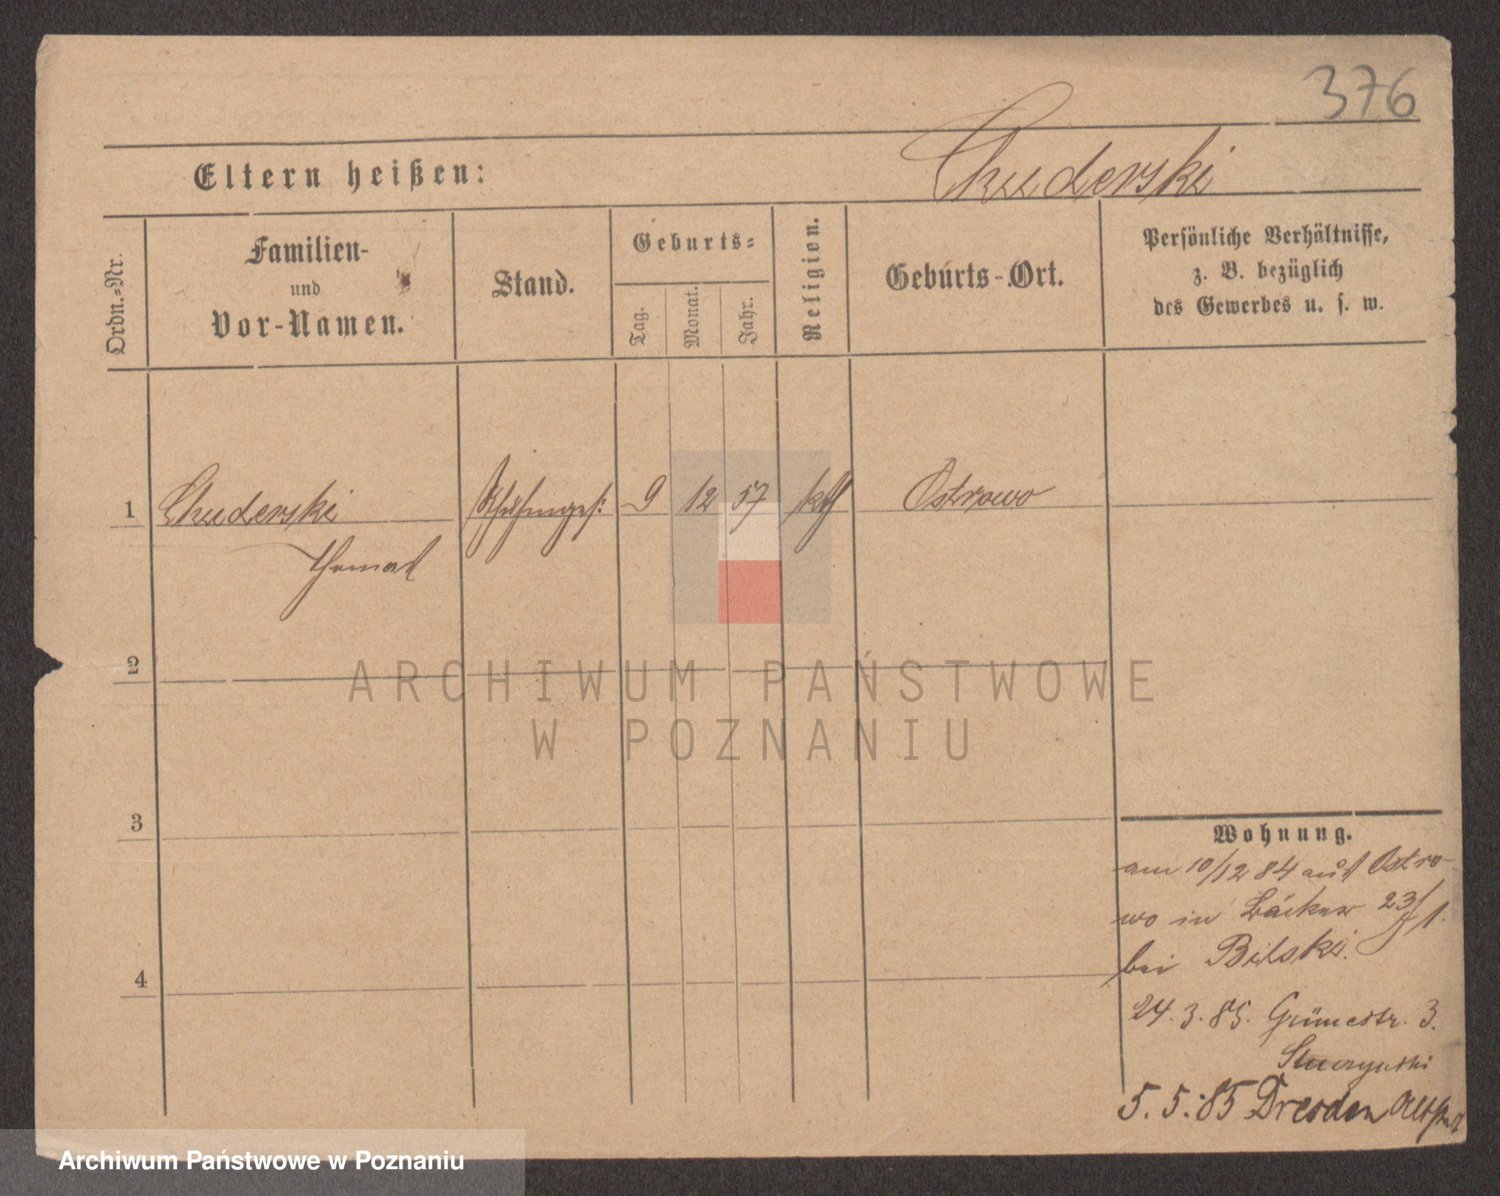 376
Eltern heißen:
Chuderski
Ordn.-Nr.
Familien-
und
Vor-Namen.
Stand.
Geburts-
Tag.
Monat.
Jahr.
Religion.
Geburts-Ort.
Persönliche Verhältnisse,
z. B. bezüglich
des Gewerbes u. s. w.
1 Chuderski 9 12 57 kth Ostrowo
Thomas
2
ARCHIWUM PAŃSTWOWE
W POZNANIU
3
Wohnung.
am 10/12 84 aus Ostro-
wo in Bäcker 23/1.
bei Bilski.
4
24.3.85. Grünestr. 3.
5.5.85 Dresden
Archiwum Państwowe w Poznaniu